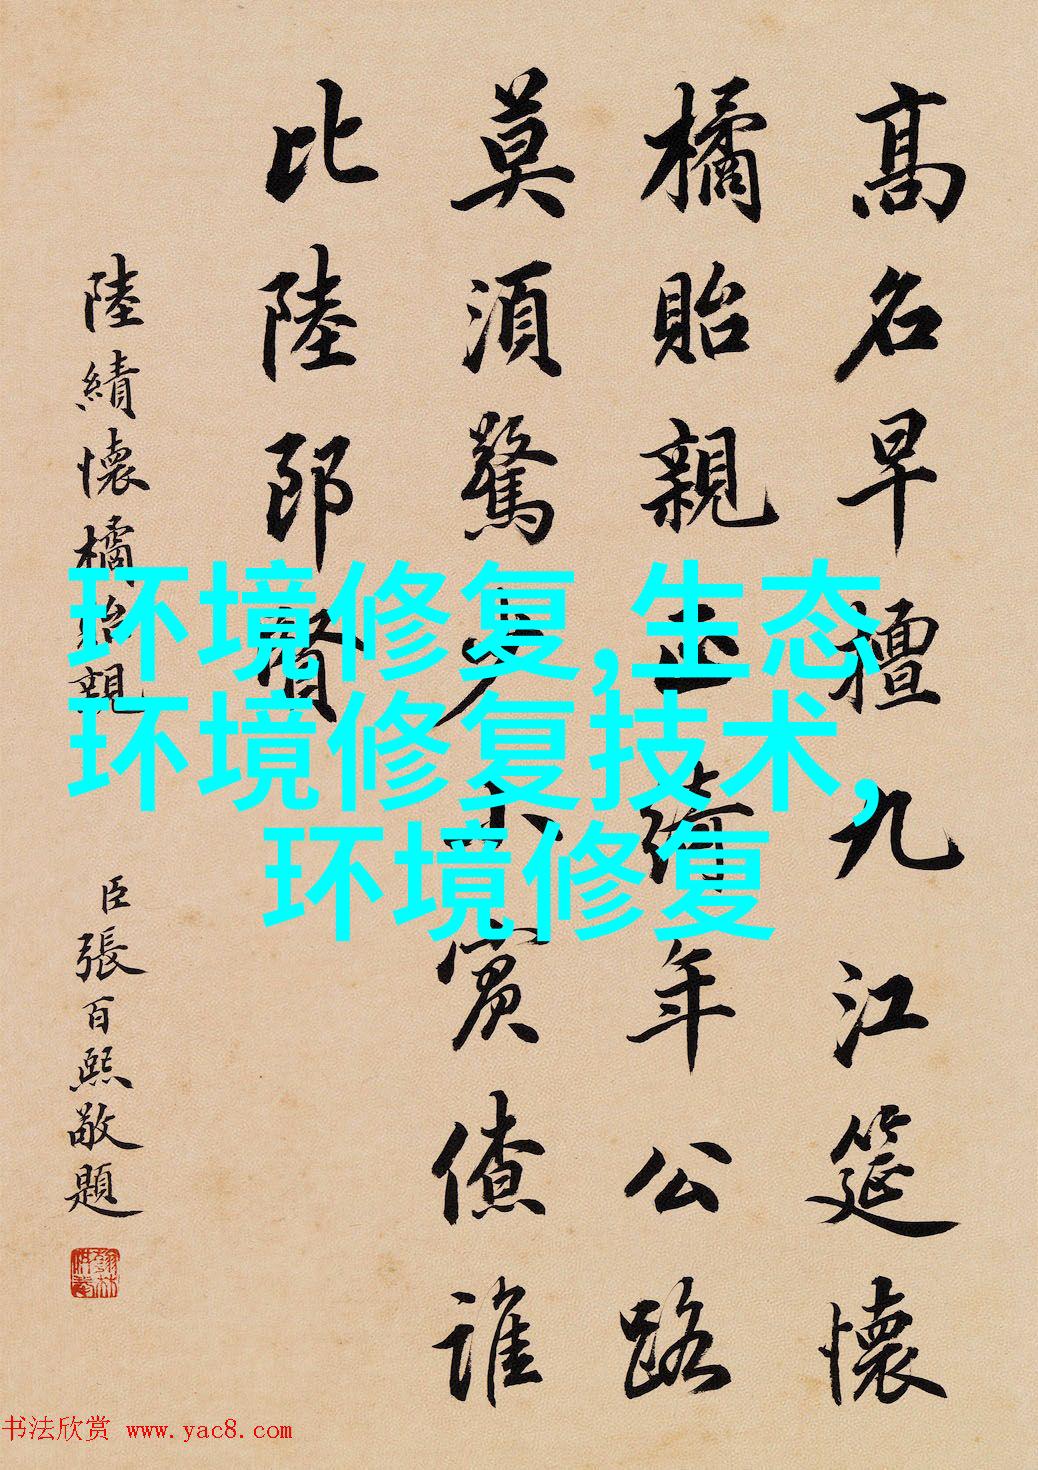 高名早擅九江筵懷
橘貽親正綺年公路
莫須驚少小賓僚誰
比陸郎賢
陸績懷橘貽親
臣張百熙敬題
环境修复,生态
环境修复技术,
环境修复
书法欣赏 www.yac8.com